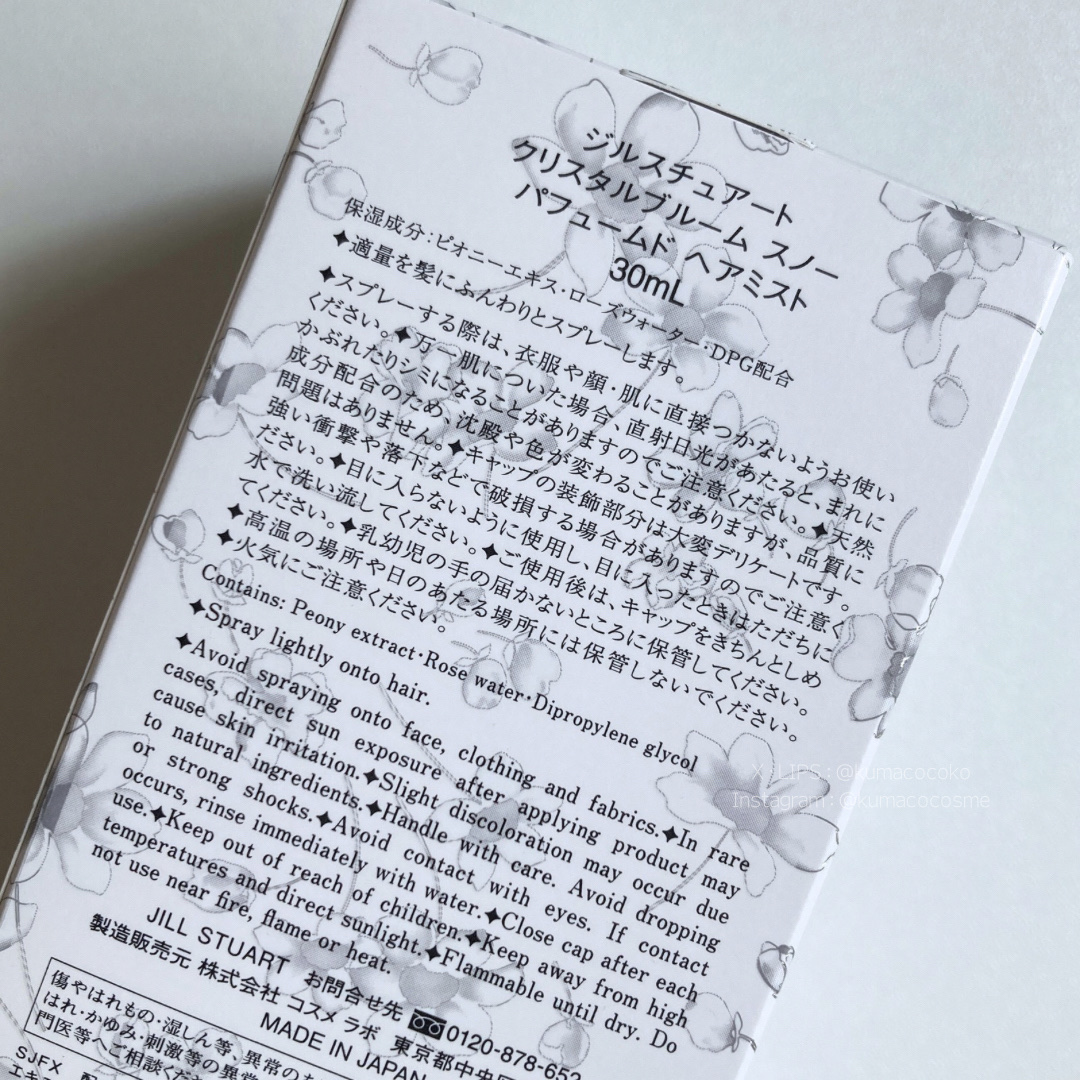 ジルスチュアート
クリスタルブルーム スノー
パフュームド ヘアミスト
30mL
保湿成分:ピオニーエキス・ローズウォーター・DPG配合
✦適量を髪にふんわりとスプレーします。
✦スプレーする際は、衣服や顔・肌に直接つかないようお使い
ください。✦万一肌についた場合、直射日光があたると、まれに
かぶれたりシミになることがありますのでご注意ください。✦天然
成分配合のため、沈殿や色が変わることがありますが、品質に
問題はありません。✦キャップの装飾部分は大変デリケートです。
強い衝撃や落下などで破損する場合がありますのでご注意く
ださい。✦目に入らないように使用し、目に入ったときはただちに
水で洗い流してください。✦ご使用後は、キャップをきちんとしめ
てください。✦乳幼児の手の届かないところに保管してください。
✦高温の場所や日のあたる場所には保管しないでください。
✦火気にご注意ください。
Contains: Peony extract・Rose water・Dipropylene glycol
✦Spray lightly onto hair.
✦Avoid spraying onto face, clothing and fabrics.✦In rare
cases, direct sun exposure after applying product may
cause skin irritation.✦Slight discoloration may occur due
to natural ingredients.✦Handle with care. Avoid dropping
or strong shocks.✦Avoid contact with eyes. If contact
occurs, rinse immediately with water.✦Close cap after each
use.✦Keep out of reach of children.✦Keep away from high
temperatures and direct sunlight.✦Flammable until dry. Do
not use near fire, flame or heat.
JILL STUART お問合せ先 0120-878-652
製造販売元 株式会社 コスメ ラボ 東京都中央区
MADE IN JAPAN
傷やはれもの・湿しん等、異常の
はれ・かゆみ・刺激等の異常
門医等へご相談くだ
SJFX 配
エキ
X・LIPS : @kumacocoko
Instagram : @kumacocosme